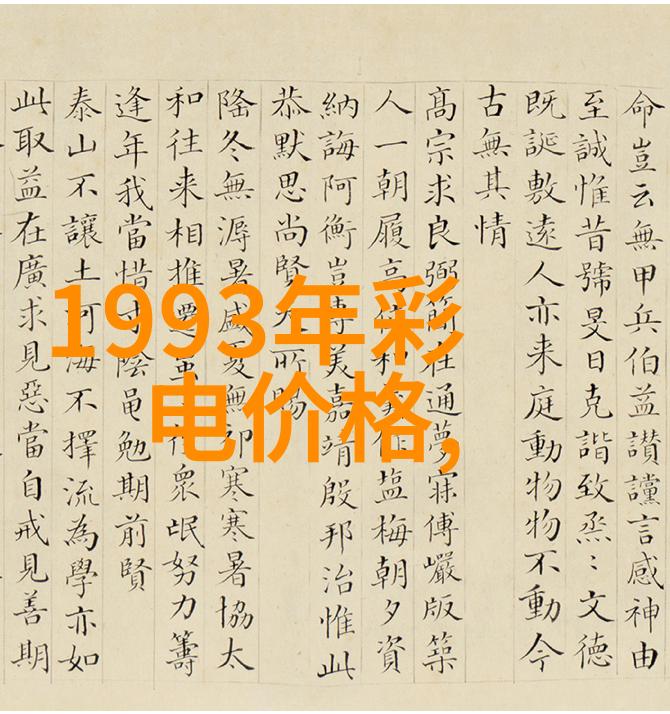 命豈云無甲兵伯益讃讜言感神由
至誠惟昔號旻日克諧致烝〻文德
既誕敷遠人亦来庭動物物不動今
古無其情
髙宗求良弼簡在通夢寐傅巖版築
人一朝履高位和羹作塩梅朝夕資
納誨阿衡豈專美嘉靖殷邦治惟此
恭默思尚賢天所賜
隆冬無溽暑盛夏無冱寒寒暑協太
和往来相推遷衆氓努力籌
逢年我當惜寸陰黽勉期前賢
泰山不讓土河海不擇流為學亦如
此取益在廣求見惡當自戒見善期
1993年彩
电价格,